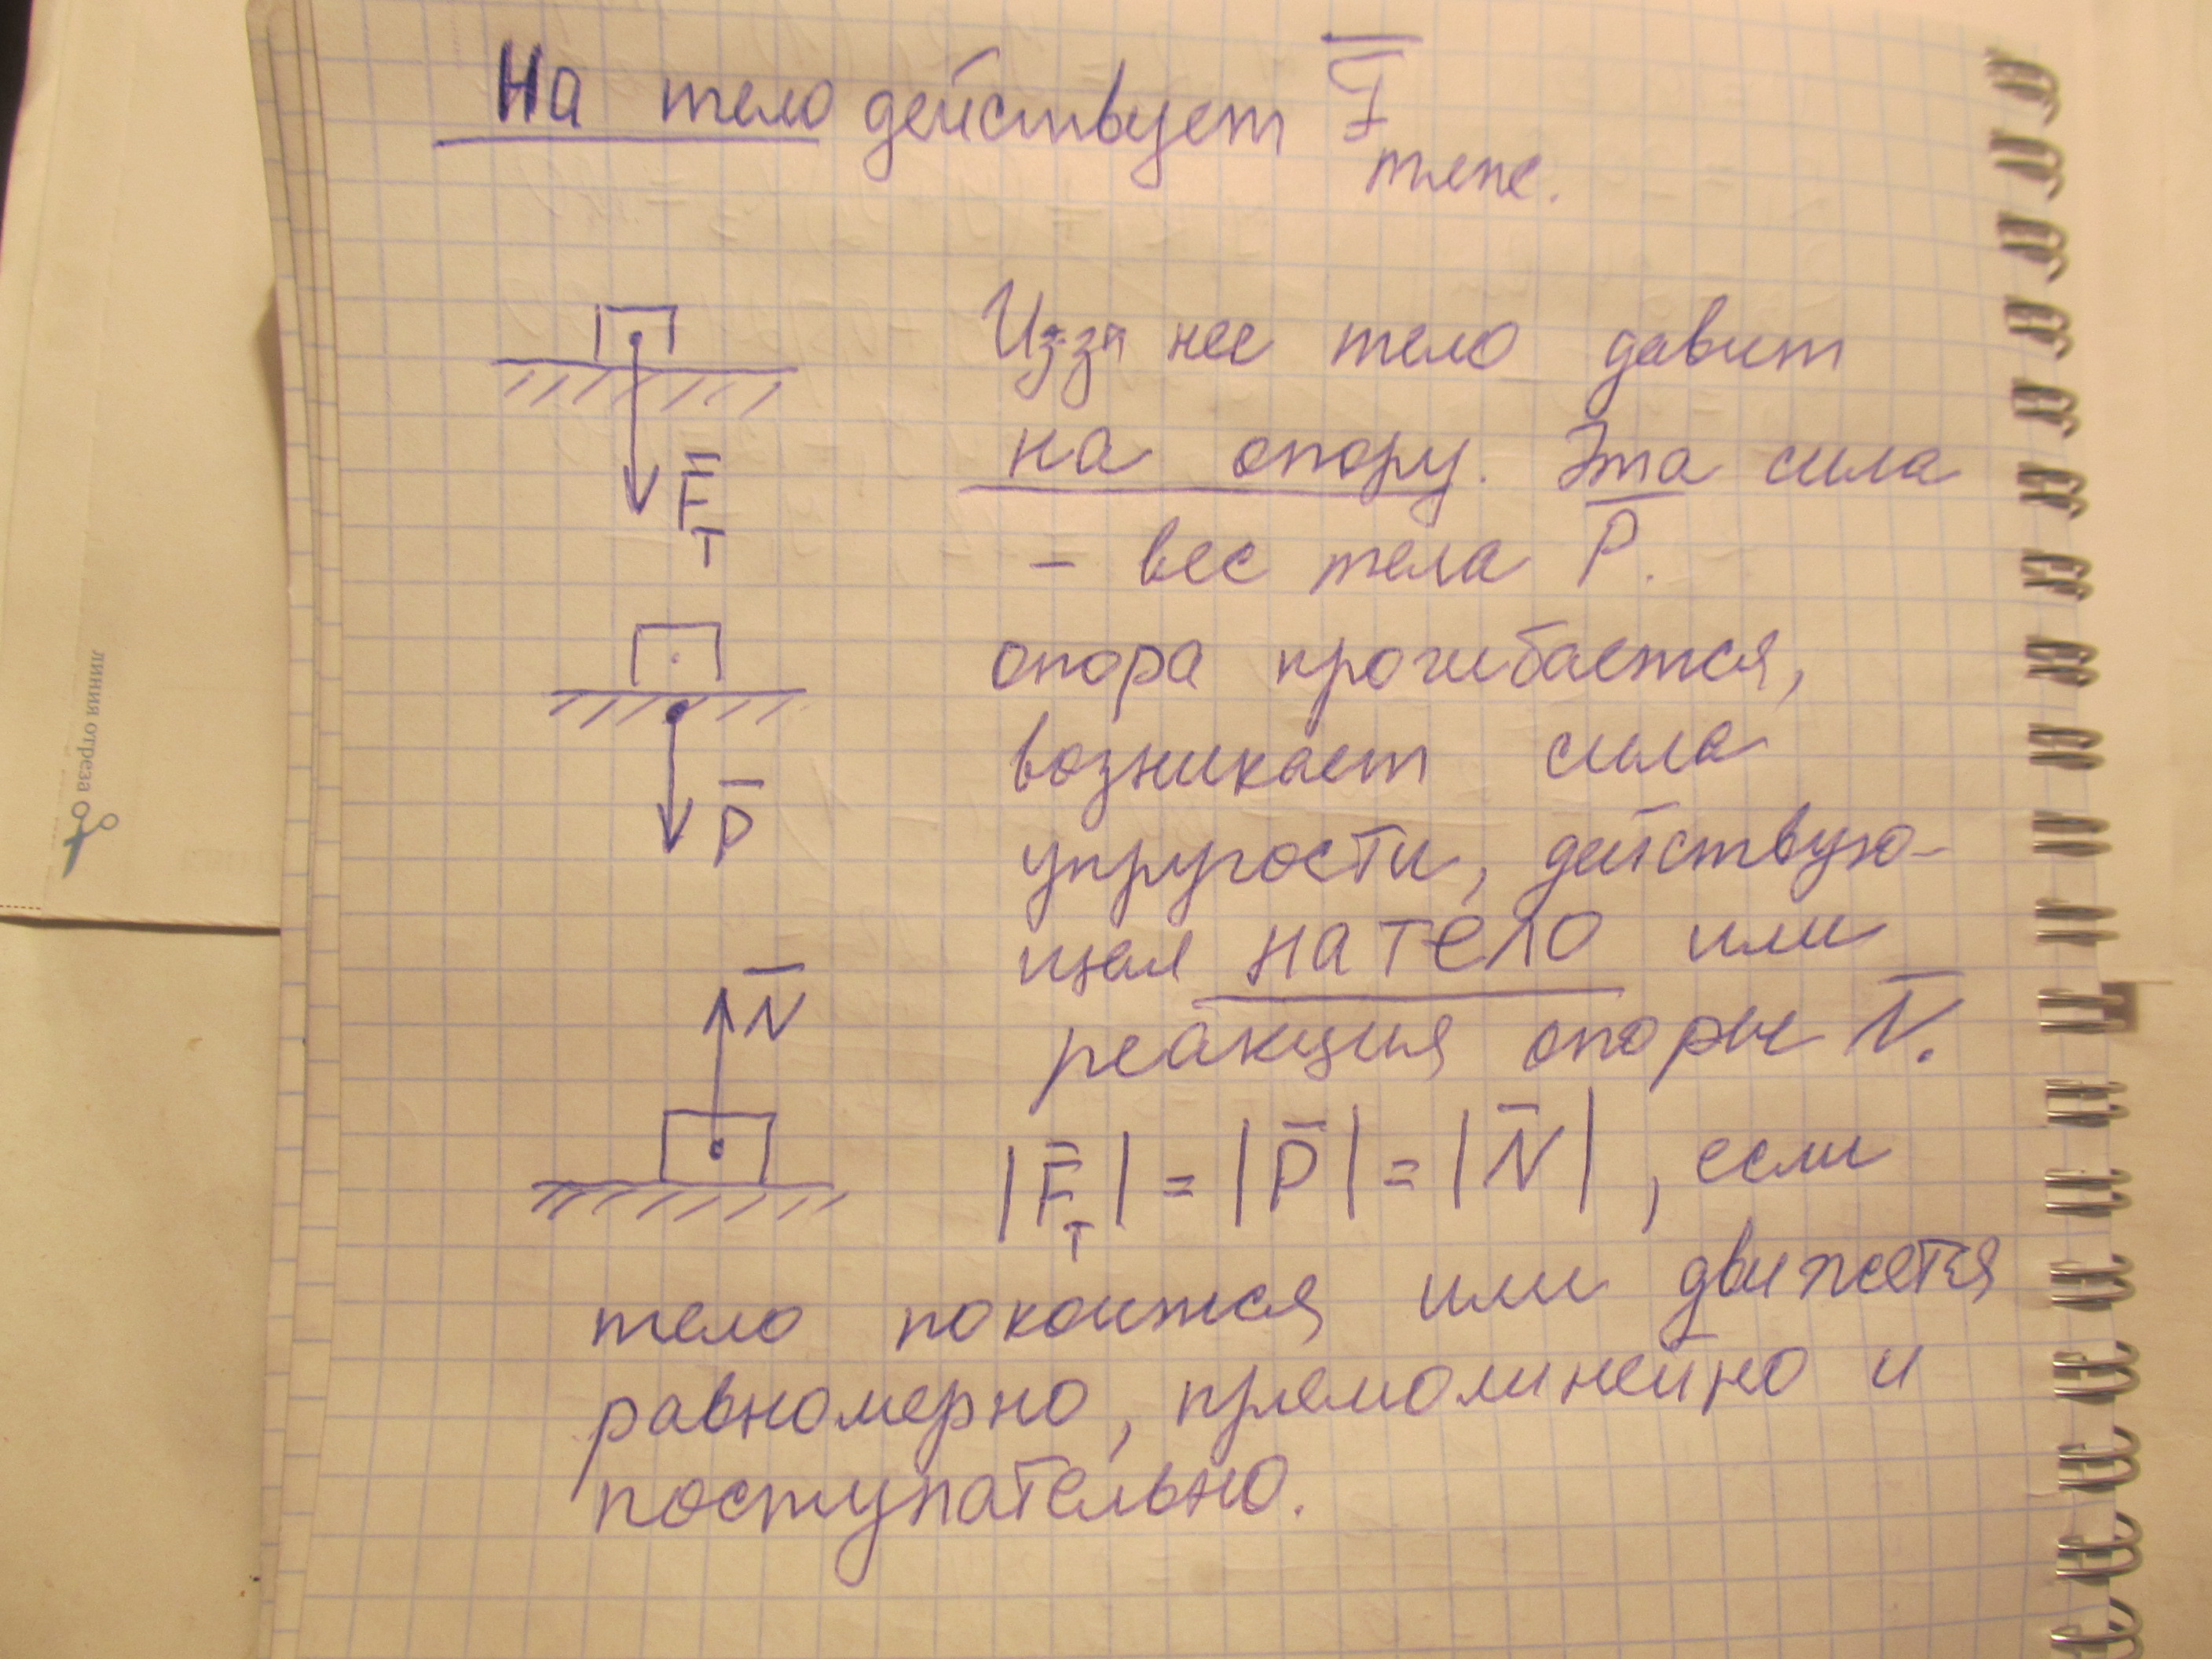 На тело действует F̅
тяж.
Из-за нее тело давит
на опору. Эта сила
F̅
т
- вес тела P̅.
опора прогибается,
возникает сила
P̅
упругости, действую-
щая НА ТЕЛО или
N̅
реакция опоры N̅.
|F̅т| = |P̅| = |N̅|, если
тело покоится или движется
равномерно, прямолинейно и
поступательно.
линия отреза